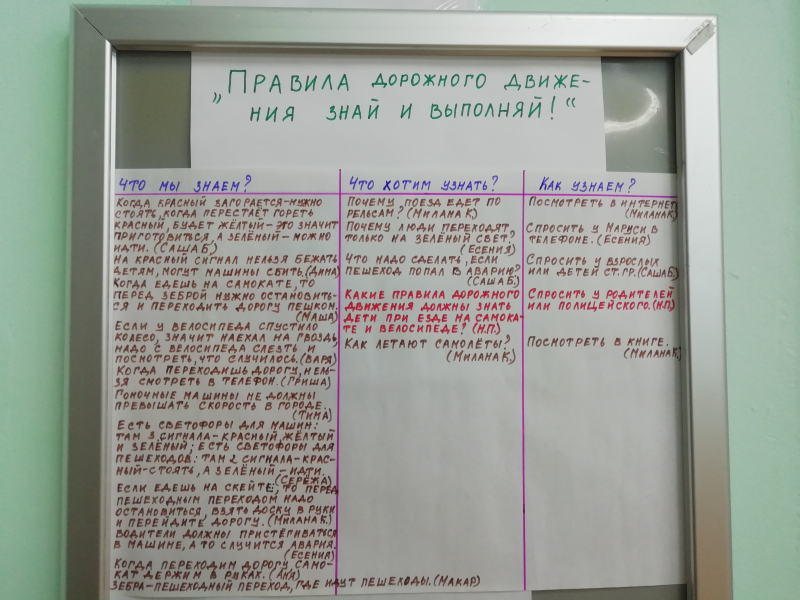 „Правила дорожного движе-
ния знай и выполняй!“
Что мы знаем?
Когда красный загорается-нужно
стоять, когда перестаёт гореть
красный, будет жёлтый-это значит
приготовиться, а зелёный-можно
идти. (Саша Б.)
На красный сигнал нельзя бежать
детям, могут машины сбить. (Дина)
Когда едешь на самокате, то
перед зеброй нужно остановить-
ся и переходить дорогу пешком.
(Маша)
Если у велосипеда спустило
колесо, значит наехал на гвоздь,
надо с велосипеда слезть и
посмотреть, что случилось. (Варя)
Когда переходишь дорогу, нель-
зя смотреть в телефон. (Гриша)
Гоночные машины не должны
превышать скорость в городе.
(Тима)
Есть светофоры для машин:
там 3 сигнала-красный, жёлтый
и зелёный; есть светофоры для
пешеходов: там 2 сигнала-крас-
ный-стоять, а зелёный-идти.
(Серёжа)
Если едешь на скейте, то перед
пешеходным переходом надо
остановиться, взять доску в руки
и перейдите дорогу. (Милана К.)
Водители должны пристёгиваться
в машине, а то случится авария.
(Есения)
Когда переходим дорогу, само-
кат держим в руках. (Аня)
Зебра-пешеходный переход, где идут пешеходы. (Макар)
Что хотим узнать?
Почему поезд едет по
рельсам? (Милана К.)
Почему люди переходят
только на зелёный свет?
(Есения)
Что надо сделать, если
пешеход попал в аварию?
(Саша Б.)
Какие правила дорожного
движения должны знать
дети при езде на самока-
те и велосипеде? (Н.П.)
Как летают самолёты?
(Милана К.)
Как узнаем?
Посмотреть в интернет
(Милана К.)
Спросить у Маруси в
телефоне. (Есения)
Спросить у взрослых
или детей ст.гр. (Саша Б.)
Спросить у родителей
или полицейского. (Н.П.)
Посмотреть в книге.
(Милана К.)